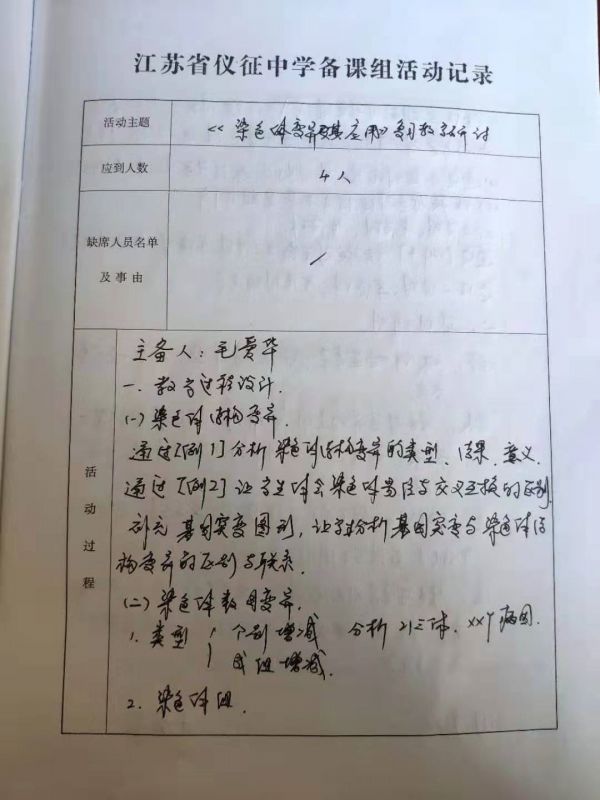 江苏省仪征中学备课组活动记录
活动主题
《染色体变异及其应用》复习教学研讨
应到人数
4人
缺席人员名单
及事由
/
活动过程
主备人：毛爱华
一、教学过程设计.
(一)染色体结构变异.
通过[例1]分析染色体结构变异的类型、结果、意义.
通过[例2]让学生体会染色体易位与交叉互换的区别.
补充基因突变图形，让学生分析基因突变与染色体结
构变异的区别与联系.
(二)染色体数目变异.
1. 类型 { 个别增减 分析21三体、XXY病因.
成组增减.
2. 染色体组.